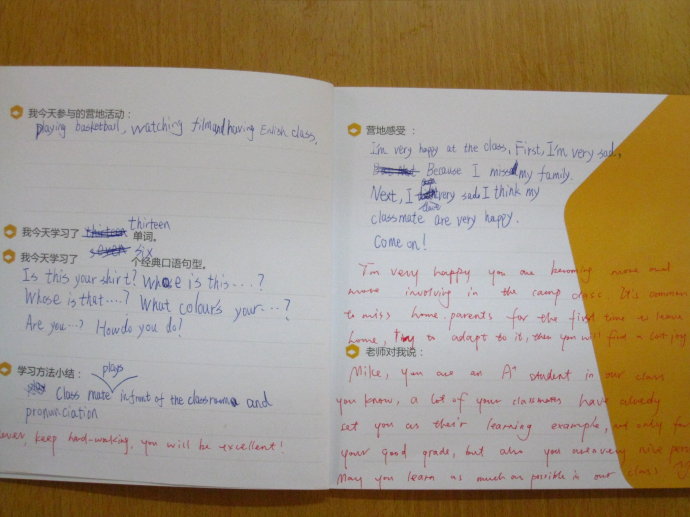 我今天参与的营地活动：
playing basketball, watching film and having Enlish class,
我今天学习了 thirteen 单词。
我今天学习了 six 个经典口语句型。
Is this your shirt? Whose is this····?
Whose is that····? What colours your····?
Are you···? How do you do?
学习方法小结：
plays
Class mate in front of the classroom and
pronunciation
ever, keep hard-walking, you will be excellent!
营地感受：
I'm very happy at the class, First, I'm very sad,
Because I miss my family.
Next, I very sad I think my
classmate are very happy.
Come on!
I'm very happy you are becoming more and
more involving in the camp class. It's common
to miss home. parents for the first time to leave
home, try to adapt to it, then you will find a lot joy
老师对我说：
Mike, you are an A+ student in our class
you know, a lot of your classmates have already
set you as their learning example, not only for
your good grade, but also you are very nice person
May you learn as much as possible in our class